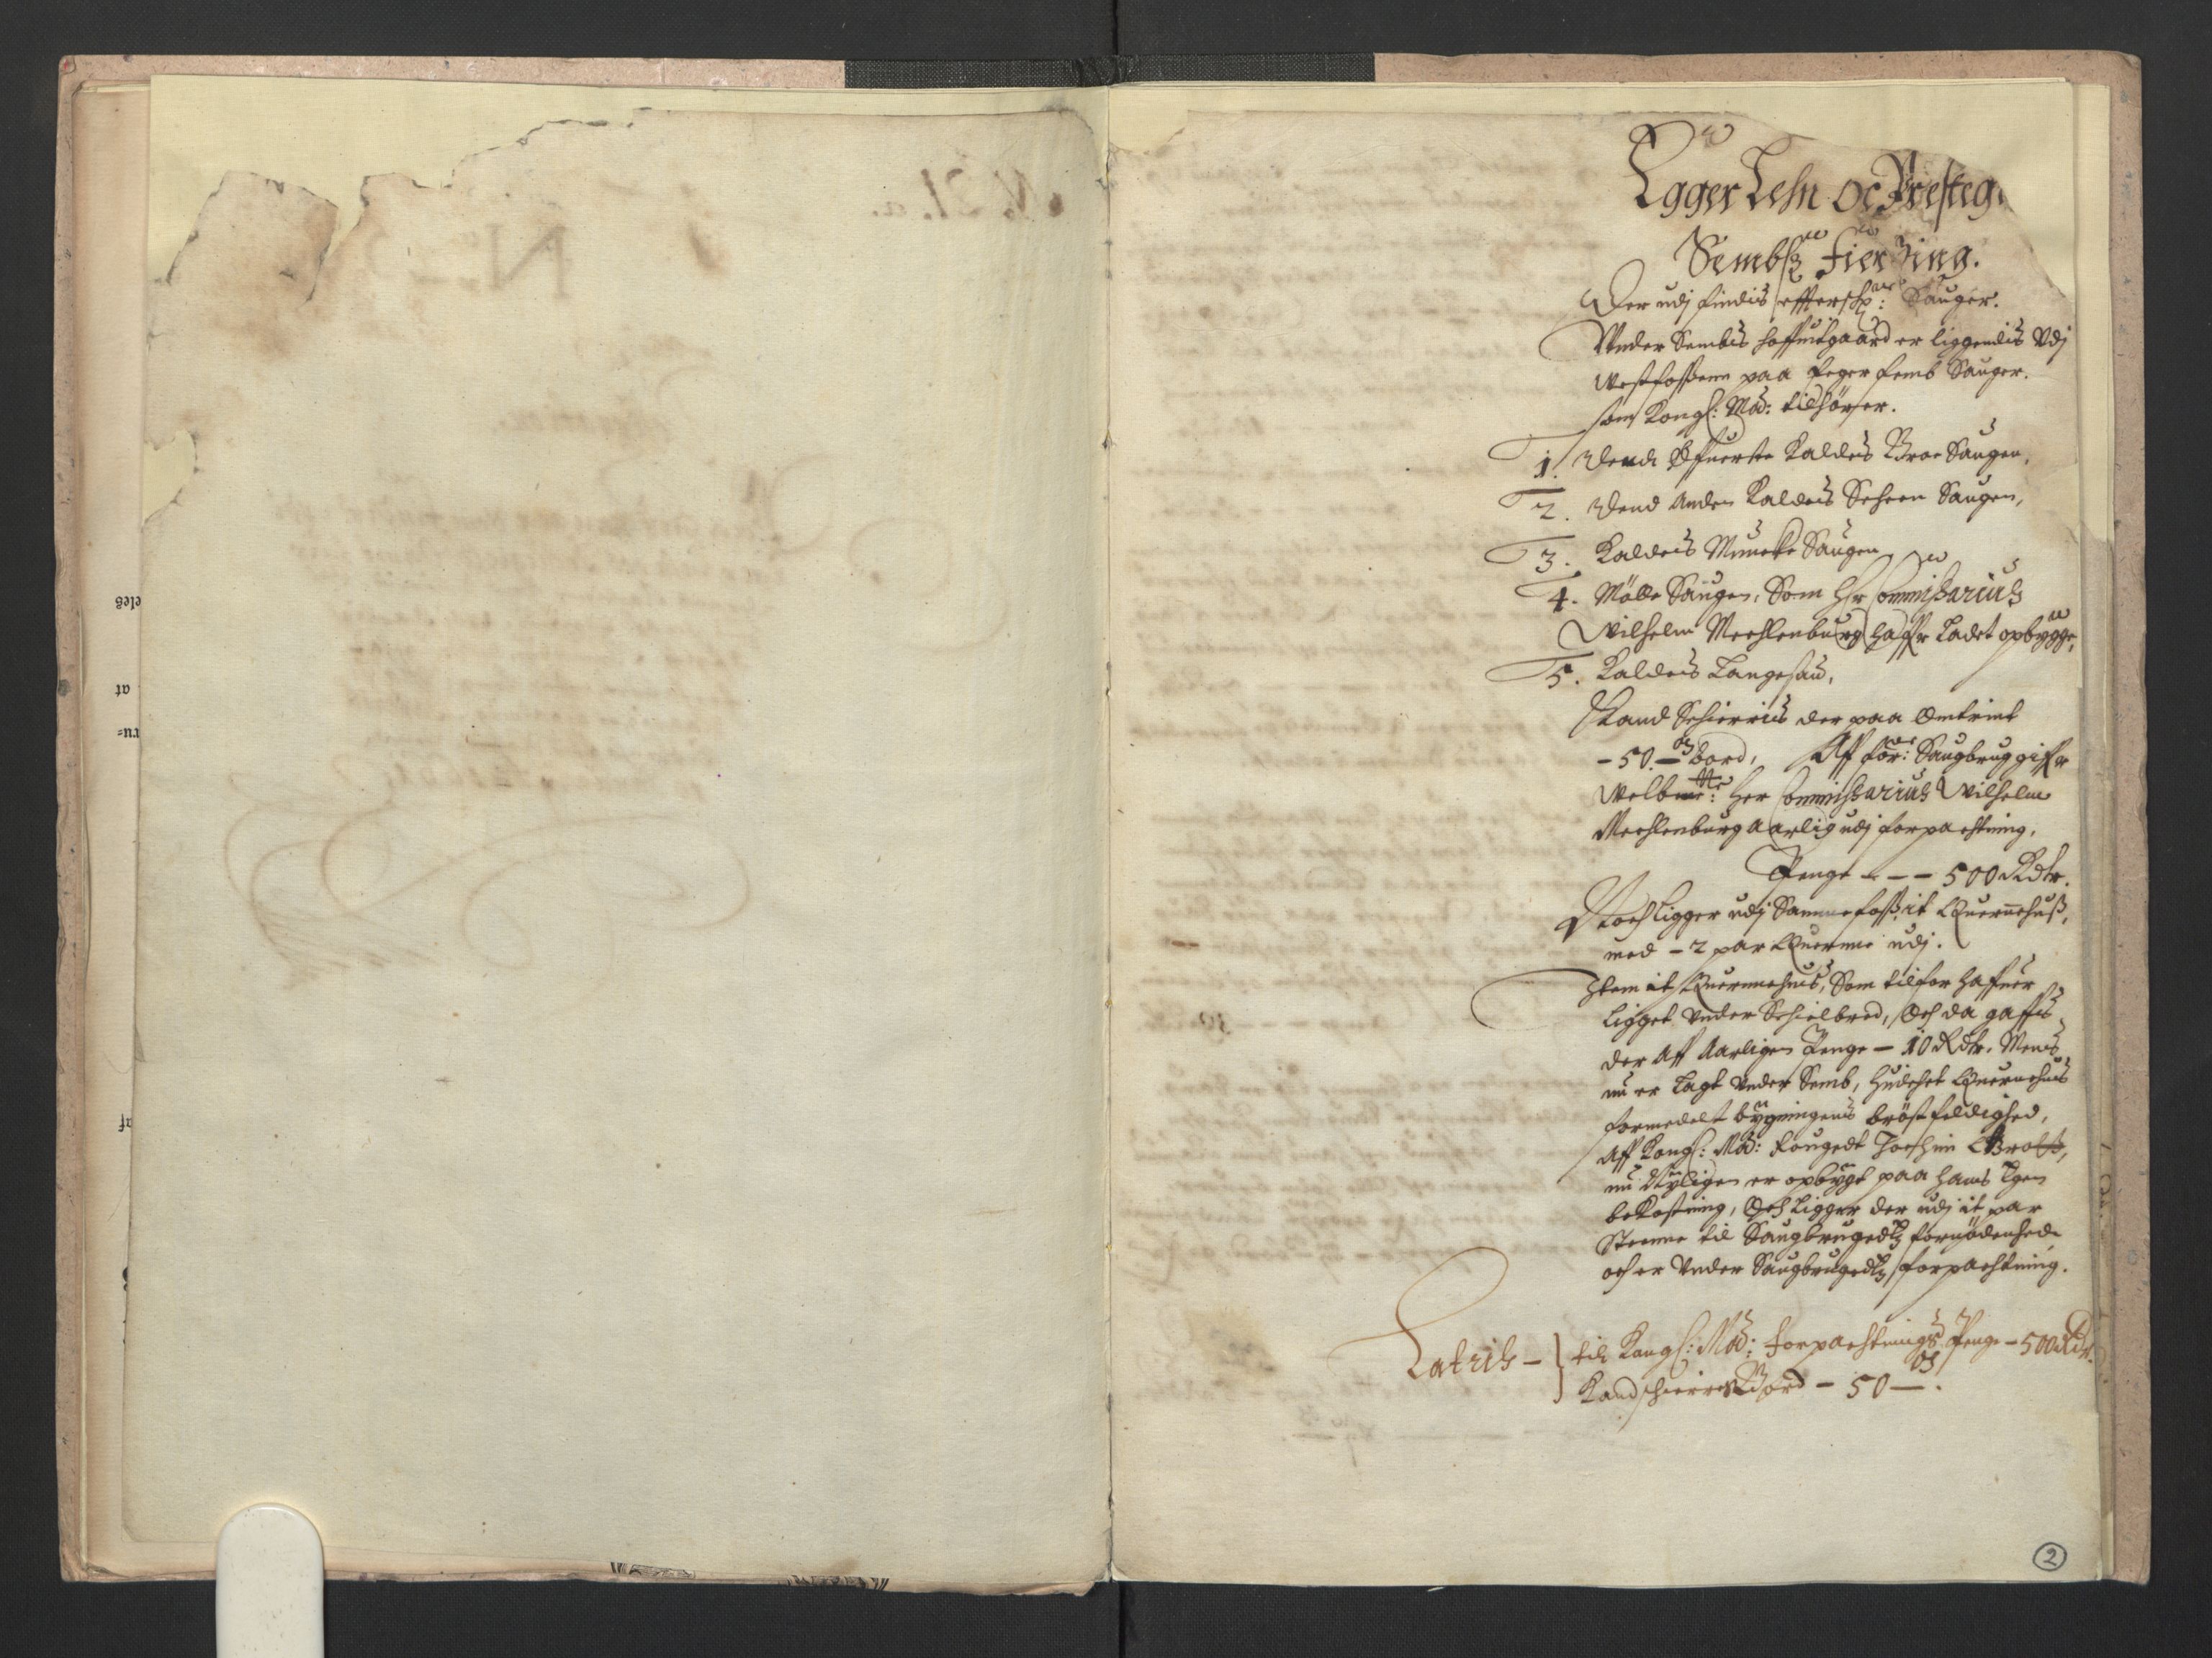 Egger Lehn oc Presteg
Sembsz Fierding.
Der udj findis effterschr: Sauger.
Vnder Sembs hoffuitgaard er liggendis Vdj
Westfossenn paa Eger femb Sauger.
som Kongl: Maÿ: tilhörer.
1. Dend Öfuerste Kaldes Broe Saugen,
2. Dend Anden Kaldes Schreen Saugen,
3. Kaldes Muncke Saugen,
4. Mölle Saugen, Som Hr Commissarius
Wilhelm Mechlenburg haffr Ladet opbygge,
5. Kaldes Langesau,
Kand Schierris der paa Omtrint
- 50. - bord, Aff for: Saugbrug giffr
Welb: Her Commissarius Wilhelm
Mechlenburg Aarlig udj forpachtning,
Penge - - - 500 Rdr.
Noch Ligger udj Samme foss, it Quernehuss,
med - 2 par Querne udj.
Item it Quernehus, Som tilfor haffuer
Ligget Vnder Schielbred, Och da gaffs
der Aff Aarligen Penge - 10 Rdr. Mens
nu er Lagt Vnder Semb, huilchet Quernehus
formedelst bygningens bröstfeldighed,
Aff Kongl: Maÿ: fougedt Jochim
nu Nyligen er opbygt paa hans Egen
bekostning, Och Ligger der udj it par
Steene til Saugbrugedtz fornödenhed
och er Vnder Saugbrugedtz forpachtning.
Lateris - til Kongl: Maÿ: Forpachtnings Penge - 500 Rdr.
Kand schierres Bord - 50 - .
2